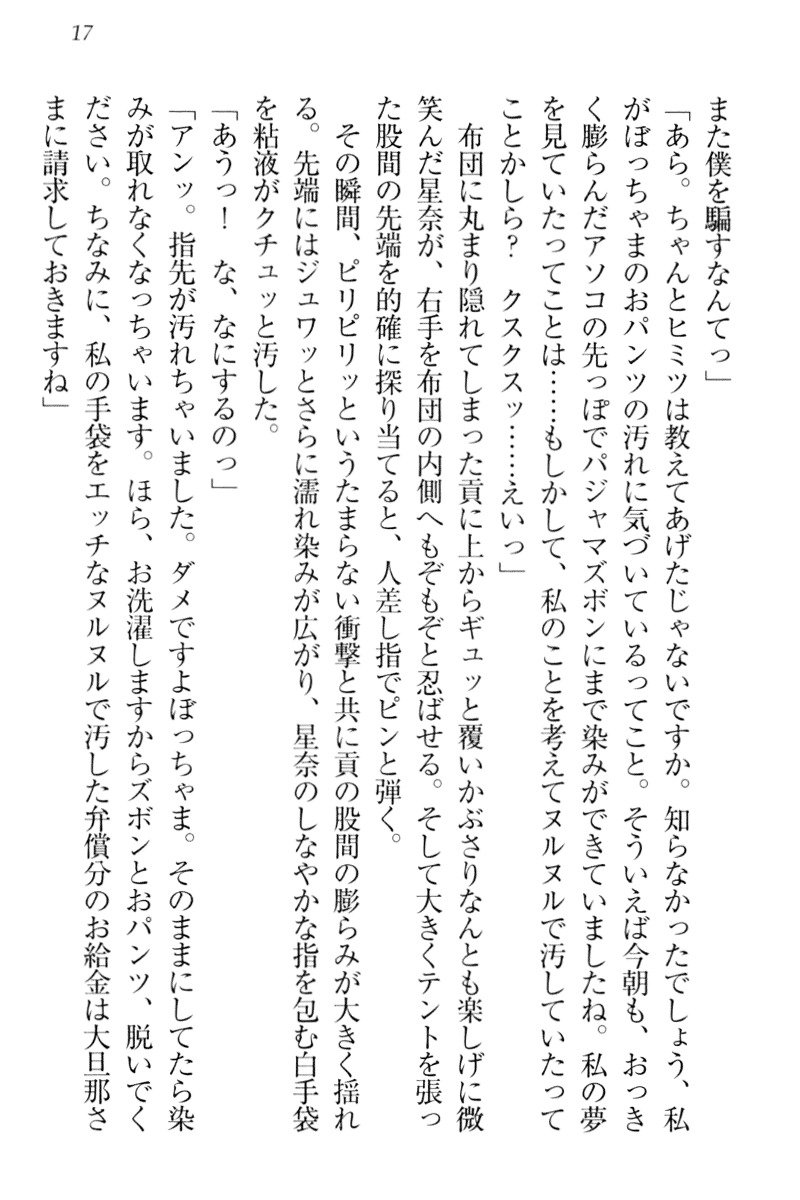 17
また僕を騙すなんてっ」
「あら。ちゃんとヒミツは教えてあげたじゃないですか。知らなかったでしょう、私
がぼっちゃまのおパンツの汚れに気づいているってこと。そういえば今朝も、おっき
く膨らんだアソコの先っぽでパジャマズボンにまで染みができていましたね。私の夢
を見ていたってことは……もしかして、私のことを考えてヌルヌルで汚していたって
ことかしら？　クスクスッ……えいっ」
　布団に丸まり隠れてしまった貢に上からギュッと覆いかぶさりなんとも楽しげに微
笑んだ星奈が、右手を布団の内側へもぞもぞと忍ばせる。そして大きくテントを張っ
た股間の先端を的確に探り当てると、人差し指でピンと弾く。
　その瞬間、ピリピリッというたまらない衝撃と共に貢の股間の膨らみが大きく揺れ
る。先端にはジュワッとさらに濡れ染みが広がり、星奈のしなやかな指を包む白手袋
を粘液がクチュッと汚した。
「あうっ！　な、なにするのっ」
「アンッ。指先が汚れちゃいました。ダメですよぼっちゃま。そのままにしてたら染
みが取れなくなっちゃいます。ほら、お洗濯しますからズボンとおパンツ、脱いでく
ださい。ちなみに、私の手袋をエッチなヌルヌルで汚した弁償分のお給金は大旦那さ
まに請求しておきますね」